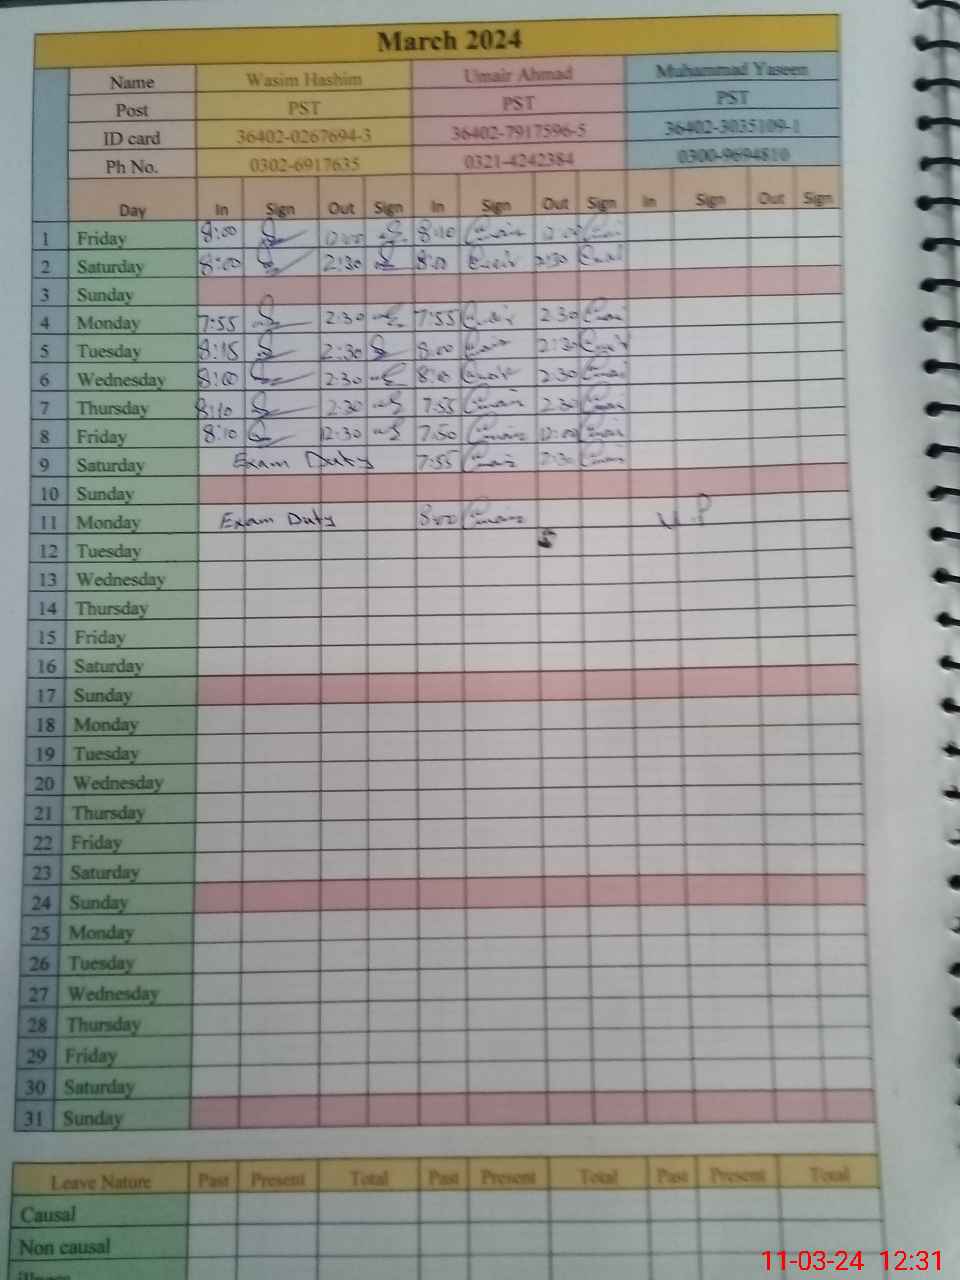 March 2024
Name Wasim Hashim Umair Ahmad Muhammad Yaseen
Post PST PST PST
ID card 36402-0267694-3 36402-7917596-5 36402-3035109-1
Ph No. 0302-6917635 0321-4242384 0300-9694810
Day In Sign Out Sign In Sign Out Sign In Sign Out Sign
1 Friday 8:00 8:10
2 Saturday 8:00 2:30 8:00 2:30
3 Sunday
4 Monday 7:55 2:30 7:55 2:30
5 Tuesday 8:15 2:30 8:00 2:30
6 Wednesday 8:00 2:30 8:00 2:30
7 Thursday 8:10 2:30 7:55 2:30
8 Friday 8:10 12:30 7:50 12:00
9 Saturday Exam Duty 7:55 2:30
10 Sunday
11 Monday Exam Duty 8:00
12 Tuesday
13 Wednesday
14 Thursday
15 Friday
16 Saturday
17 Sunday
18 Monday
19 Tuesday
20 Wednesday
21 Thursday
22 Friday
23 Saturday
24 Sunday
25 Monday
26 Tuesday
27 Wednesday
28 Thursday
29 Friday
30 Saturday
31 Sunday
Leave Nature Past Present Total Past Present Total Past Present Total
Causal
Non causal
11-03-24 12:31